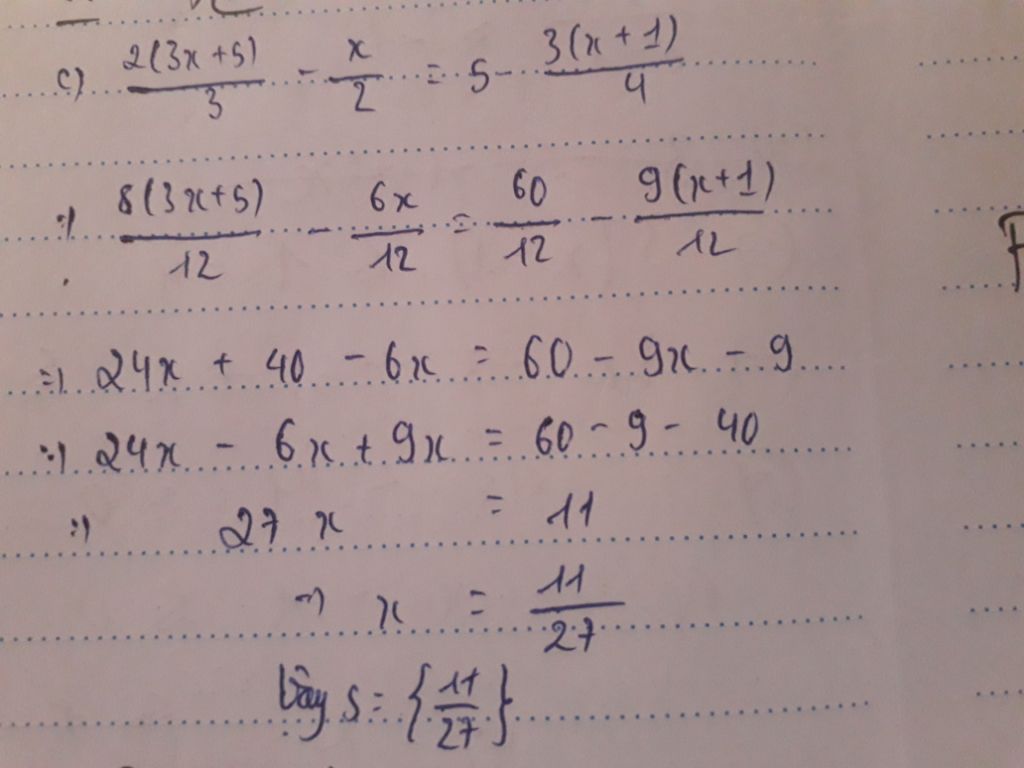 c) \frac{2(3x+5)}{3} - \frac{x}{2} = 5 - \frac{3(x+1)}{4}
=) \frac{8(3x+5)}{12} - \frac{6x}{12} = \frac{60}{12} - \frac{9(x+1)}{12}
=) 24x + 40 - 6x = 60 - 9x - 9
=) 24x - 6x + 9x = 60 - 9 - 40
=) 27x = 11
=) x = \frac{11}{27}
Vậy S = {\frac{11}{27}}